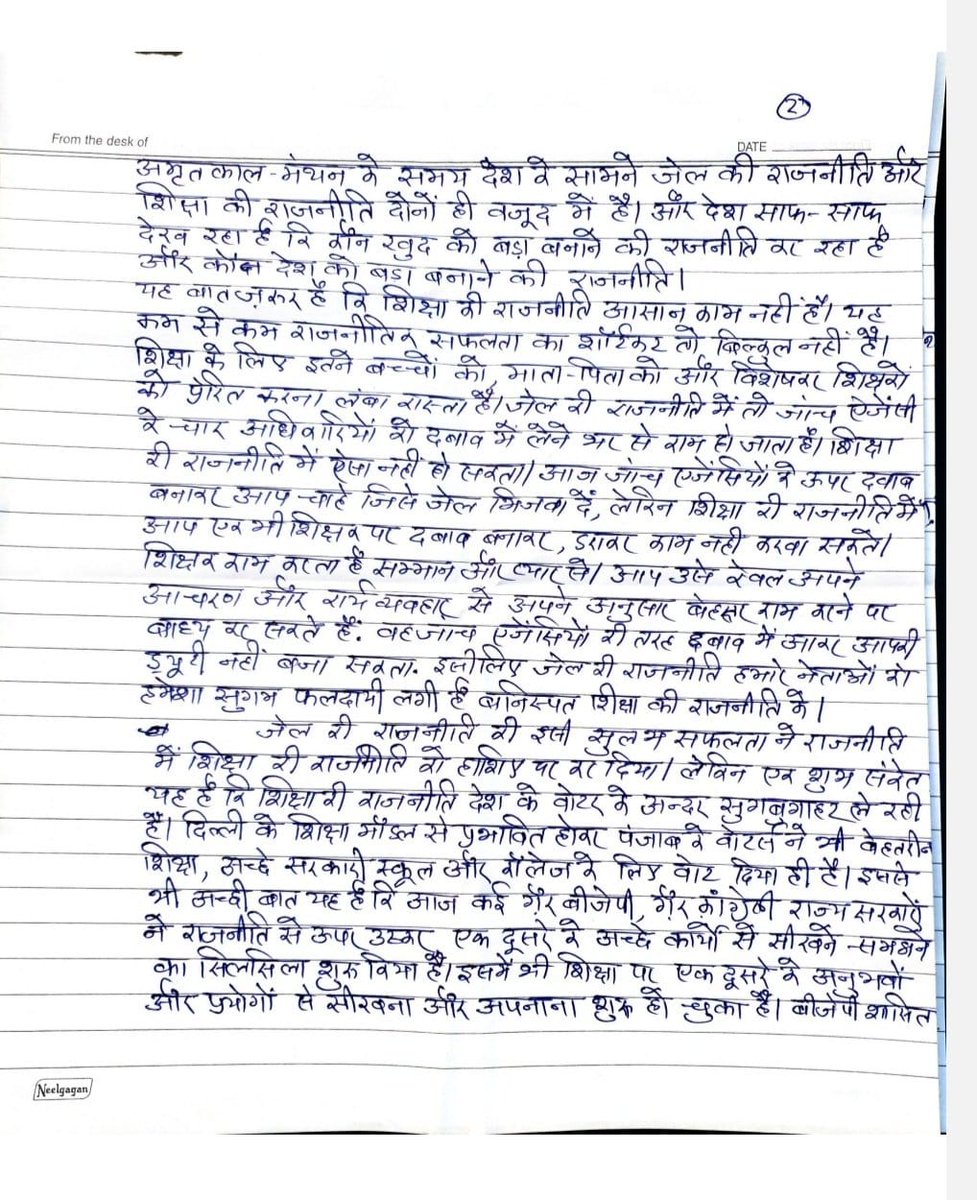 2
From the desk of
DATE
अमृतकाल-मंथन के समय देश के सामने जेल की राजनीति और
शिक्षा की राजनीति दोनों ही वजूद में है। और देश साफ-साफ
देख रहा है कि कौन खुद को बड़ा बनाने की राजनीति कर रहा है
और कौन देश को बड़ा बनाने की राजनीति।
यह बात ज़रूर है कि शिक्षा की राजनीति आसान काम नहीं है। यह
कम से कम राजनीतिक सफलता का शॉर्टकट तो बिल्कुल नहीं है।
शिक्षा के लिए इतने बच्चों को, माता-पिता को और विशेषकर शिक्षकों
को प्रेरित करना लंबा रास्ता है। जेल की राजनीति में तो जांच ऐजेंसी
के चार अधिकारियों को दबाव में लेने भर से काम हो जाता है। शिक्षा
की राजनीति में ऐसा नहीं हो सकता। आज जांच एजेंसियों के ऊपर दवाब
बनाकर आप चाहे जिसे जेल भिजवा दें, लेकिन शिक्षा की राजनीति में
आप एक भी शिक्षक पर दबाव बनाकर, डराकर काम नहीं करवा सकते।
शिक्षक काम करता है सम्मान और प्यार से। आप उसे केवल अपने
आचरण और कार्य व्यवहार से अपने अनुसार बेहतर काम करने पर
बाध्य कर सकते हैं. वह जांच एजेंसियों की तरह दबाव में आकर आपकी
ड्यूटी नहीं बजा सकता. इसीलिए जेल की राजनीति हमारे नेताओं को
हमेशा सुगम फलदायी लगी है बनिस्पत शिक्षा की राजनीति के।
जेल की राजनीति की इसी सुलभ सफलता ने राजनीति
में शिक्षा की राजनीति को हाशिए पर कर दिया। लेकिन एक शुभ संकेत
यह है कि शिक्षा की राजनीति देश के वोटर के अन्दर सुगबुगाहट ले रही
है। दिल्ली के शिक्षा मॉडल से प्रभावित होकर पंजाब के वोटर्स ने भी बेहतरीन
शिक्षा, अच्छे सरकारी स्कूल और कॉलेज के लिए वोट दिया ही है। इससे
भी अच्छी बात यह है कि आज कई गैर बीजेपी, गैर कांग्रेसी राज्य सरकारों
ने राजनीति से ऊपर उठकर एक दूसरे के अच्छे कार्यों से सीखने-समझने
का सिलसिला शुरू किया है। इसमें भी शिक्षा पर एक दूसरे के अनुभवों
और प्रयोगों से सीखना और अपनाना शुरू हो चुका है। बीजेपी शासित
Neelgagan